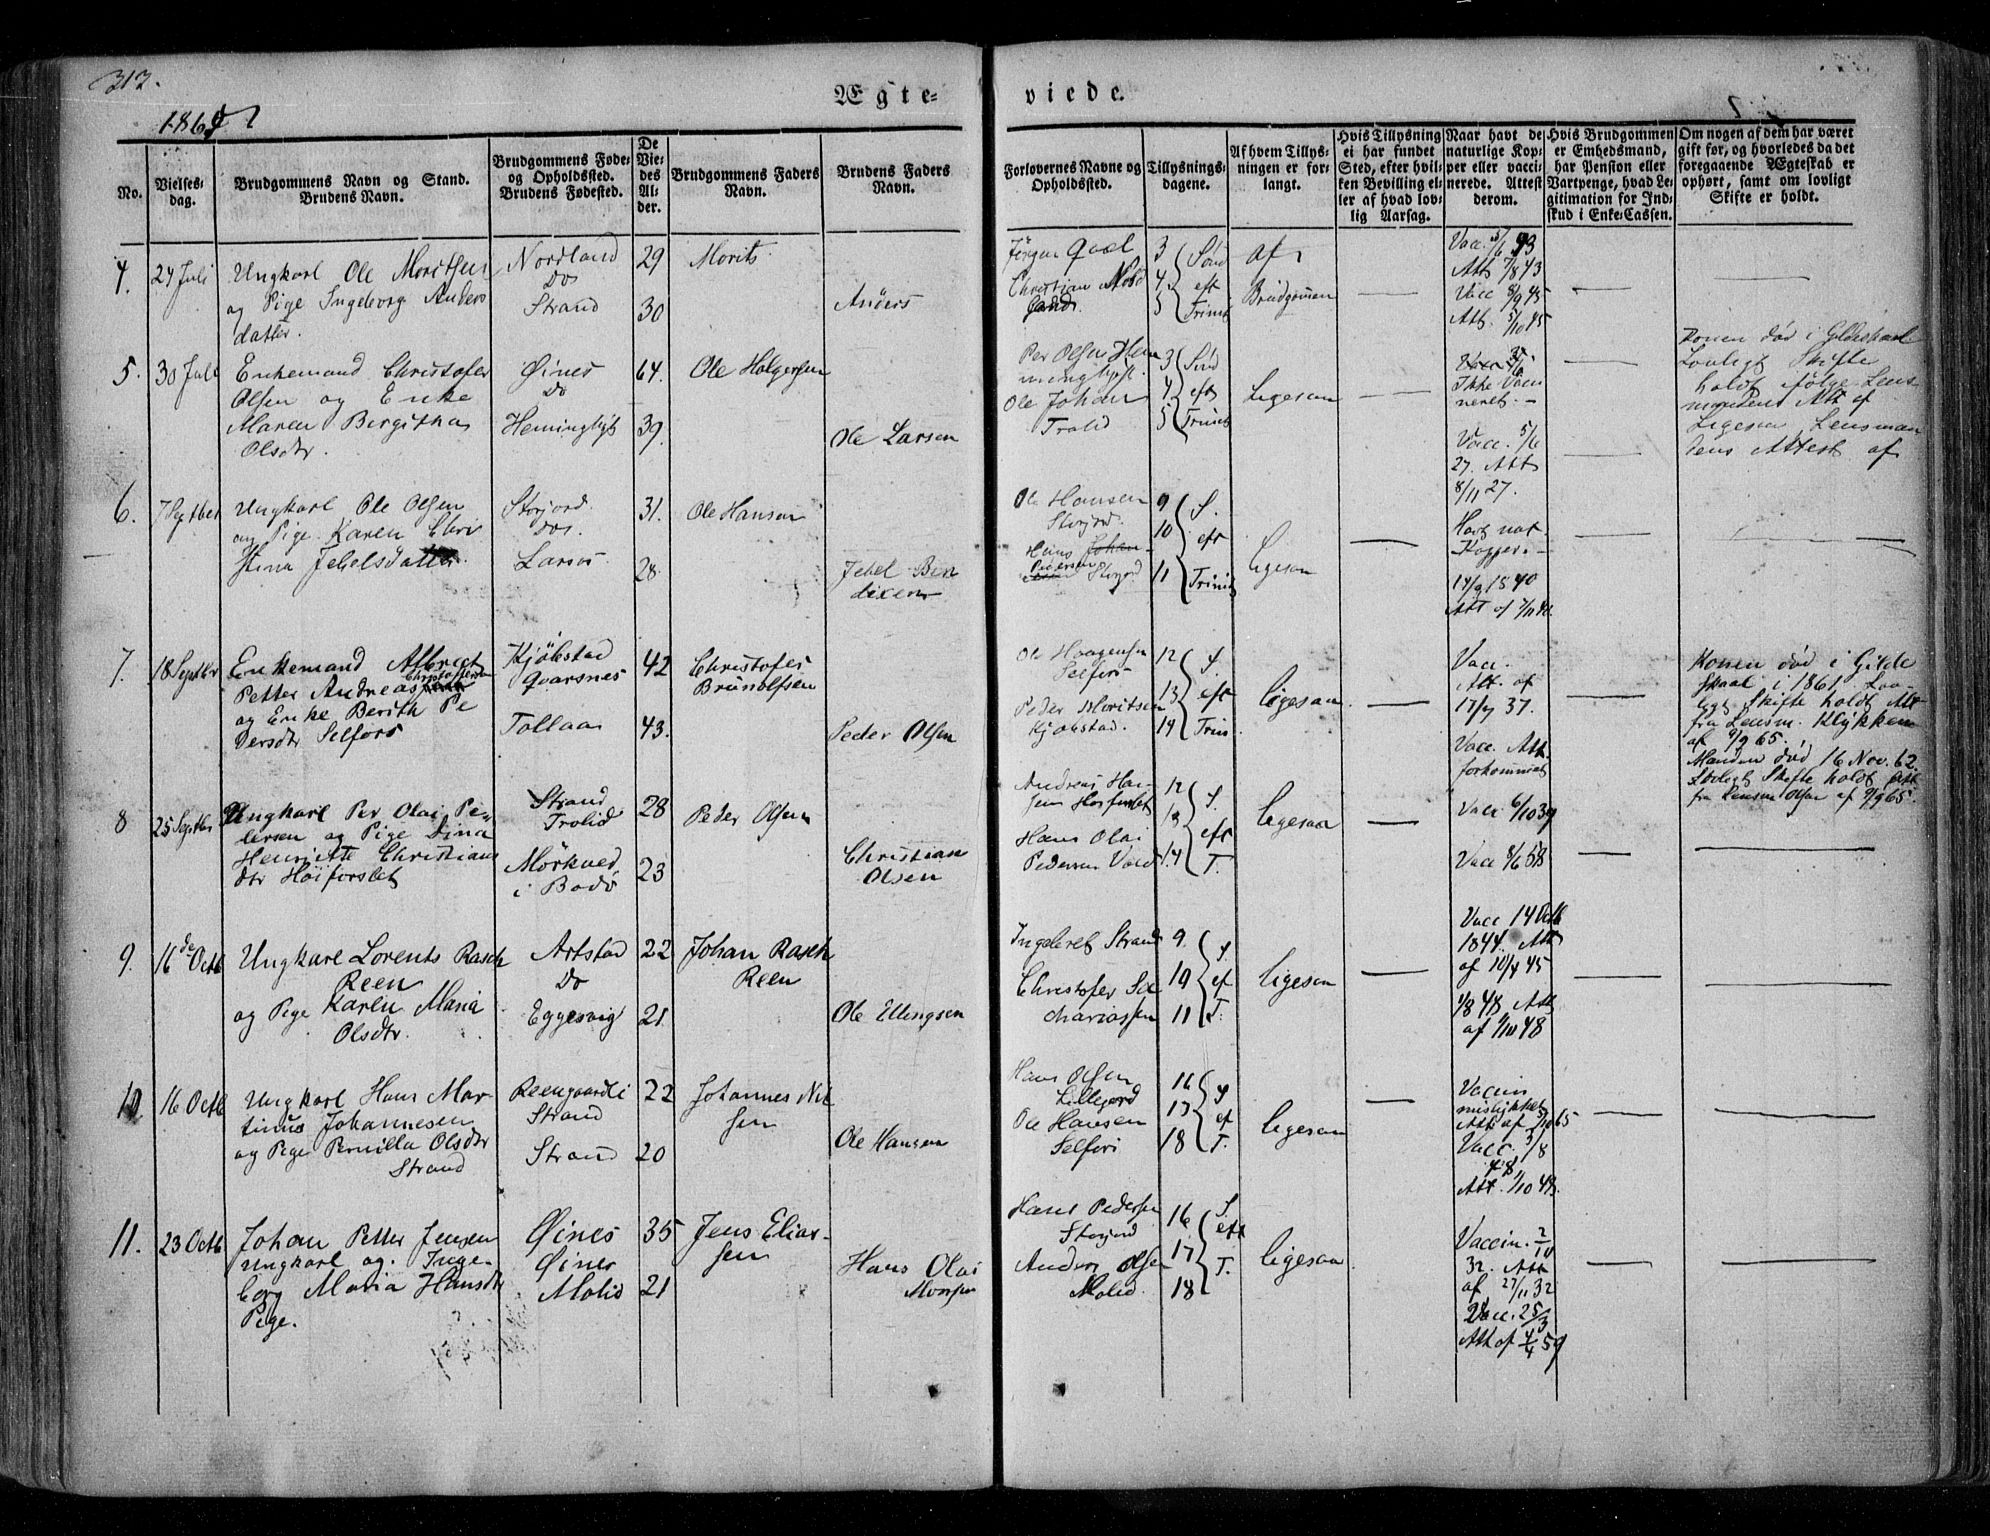 312.
Ægte-
viede.
No.
Vielses-
dag.
Brudgommens Navn og Stand.
Brudens Navn.
Brudgommens Føde-
og Opholdsted.
Brudens Fødested.
De
Vie-
des
Al-
der.
Brudgommens Faders
Navn.
Brudens Faders
Navn.
Forlovernes Navne og
Opholdsted.
Tillysnings-
dagene.
Af hvem Tillys-
ningen er for-
langt.
Hvis Tillysning
ei har fundet
Sted, efter hvil-
ken Bevilling el-
ler af hvad lov-
lig Aarsag.
Naar havt de
naturlige Kop-
per eller vacci-
nerede. Attest
derom.
Hvis Brudgommen
er Embedsmand,
har Pension eller
Vartpenge, hvad Le-
gitimation for Ind-
skud i Enke-Cassen.
Om nogen af dem har været
gift før, og hvorledes da det
foregaaende Ægteskab er
ophørt, samt om lovligt
Skifte er holdt.
4. 24 Juli
Ungkarl Ole Moritsen
og Pige Ingeborg Anders
datter.
Nordland
Do
Strand
29
30
Morits
Anders
Jörgen Qvæl
Christian Nord
land
3
4
5
Sönd
eft
Trinit
af
Brudgommen
Att 7/8 43
Vacc 8/9 45
Att. 5/10 45
5. 30 Juli
Enkemand Christofer
Olsen og Enke
Maren Bergitha
Olsdtr.
Øines
Do
Hemingligt
64.
39.
Ole Holgersen
Ole Larsen
Per Olsen Hem
Ole Johan
Trolid
3
4.
5
Sönd
eft
Trinit
Ligesaa
Ikke Vacci
neret.
Vacc. 5/6
27. Att
8/11 27.
Konen död i Gildeskaal
Lovligt Skifte
holdt ifölge Lens
mandens Att af
Ligesaa Lensman
dens Attest af
6. 7 Septber
Ungkarl Ole Olsen
og Pige Karen Chri
stina Jebelsdatter.
Storjord.
do.
Larsos
31.
28.
Ole Hansen
Jebel Ben
dixen
Ole Hansen
Storjord.
Hans Johan
Pedersen
Storjord
9
10
11
S.
eft
Trinit
Ligesaa
Havt nat
Kopper.
14/9 1840
7. 18 Septbr
Enkemand Albrect
Petter Andreas Christoffersen
og Enke Berith Pe
dersdtr Selfors
Kjöbstad
Qvarsnes
Tollaa
42
43.
Christofer
Brunolfsen
Peder Olsen
Ole Haagensen
Selfors
Peder Moritsen
Kjobstad.
12
13
14
S.
eft
Trin
Ligesaa
Vacc.
Att. af
17/7 37.
Vacc. Att
forkommet
Konen död i Gilde
skaal i 1861 Lov-
ligt Skifte holdt Att
fra Lensm. Klykken
af 9/9 65.
Manden död 16 Nov. 62.
Lovligt Skifte holdt Att
fra Lensm Olsen af 9/9 65.
8 25 Septbr
Ungkarl Per Olai Pe-
dersen og Pige Dina
Henriette Christians
dtr Höiforslet
Strand
Trolid
Mörkved
i Bodö
28
23
Peder Olsen
Christian
Olsen
Andreas Han-
sen Höiforslet
Hans Olai
Pedersen
12
13
14
S.
eft
T.
Ligesaa
Vacc 6/10 39
9. 16 de Octb
Ungkarl Lorents Rasch
Reen
og Pige Karen Maria
Olsdtr.
Artstad
Do
Eggesvig
22
21
Johan Rasch
Reen
Ole Ellingsen
Ingebret Strand
Christofer Sa
chariassen
9.
10
11
S
ef
T.
Ligesaa
Vacc 14 Octb
1844. Att
af 10/4 45
1/8 48 Att
af 1/10 48
10 16 Octb
Ungkarl Hans Mar-
tinus Johannesen
og Pige Pernilla Olsdtr
Strand
Reengaardli
Strand
Strand
22
20
Johannes Nil
sen
Ole Hansen
Hans Olsen
Lillejord
Ole Hansen
Selfors
16
17
18
S
ef
T.
Ligesaa
Vaccin
mislykket
Vacc. 3/8
48,
Att. 1/10 48.
11. 23 Octb
Johan Petter Jensen
Ungkarl og. Inge-
borg Maria Hansdtr
Pige.
Øines
Øines
Molid
35
21
Jens Elias-
sen
Hans Olai
Monsen
Hans Pedersen
Storjord
Anders Olsen
Molid.
16
17
18
S.
eft
T.
Ligesaa
Vaccin. 2/10
32. Att
af 27/11 32
Vacc. 25/3
Att af 4/4 59